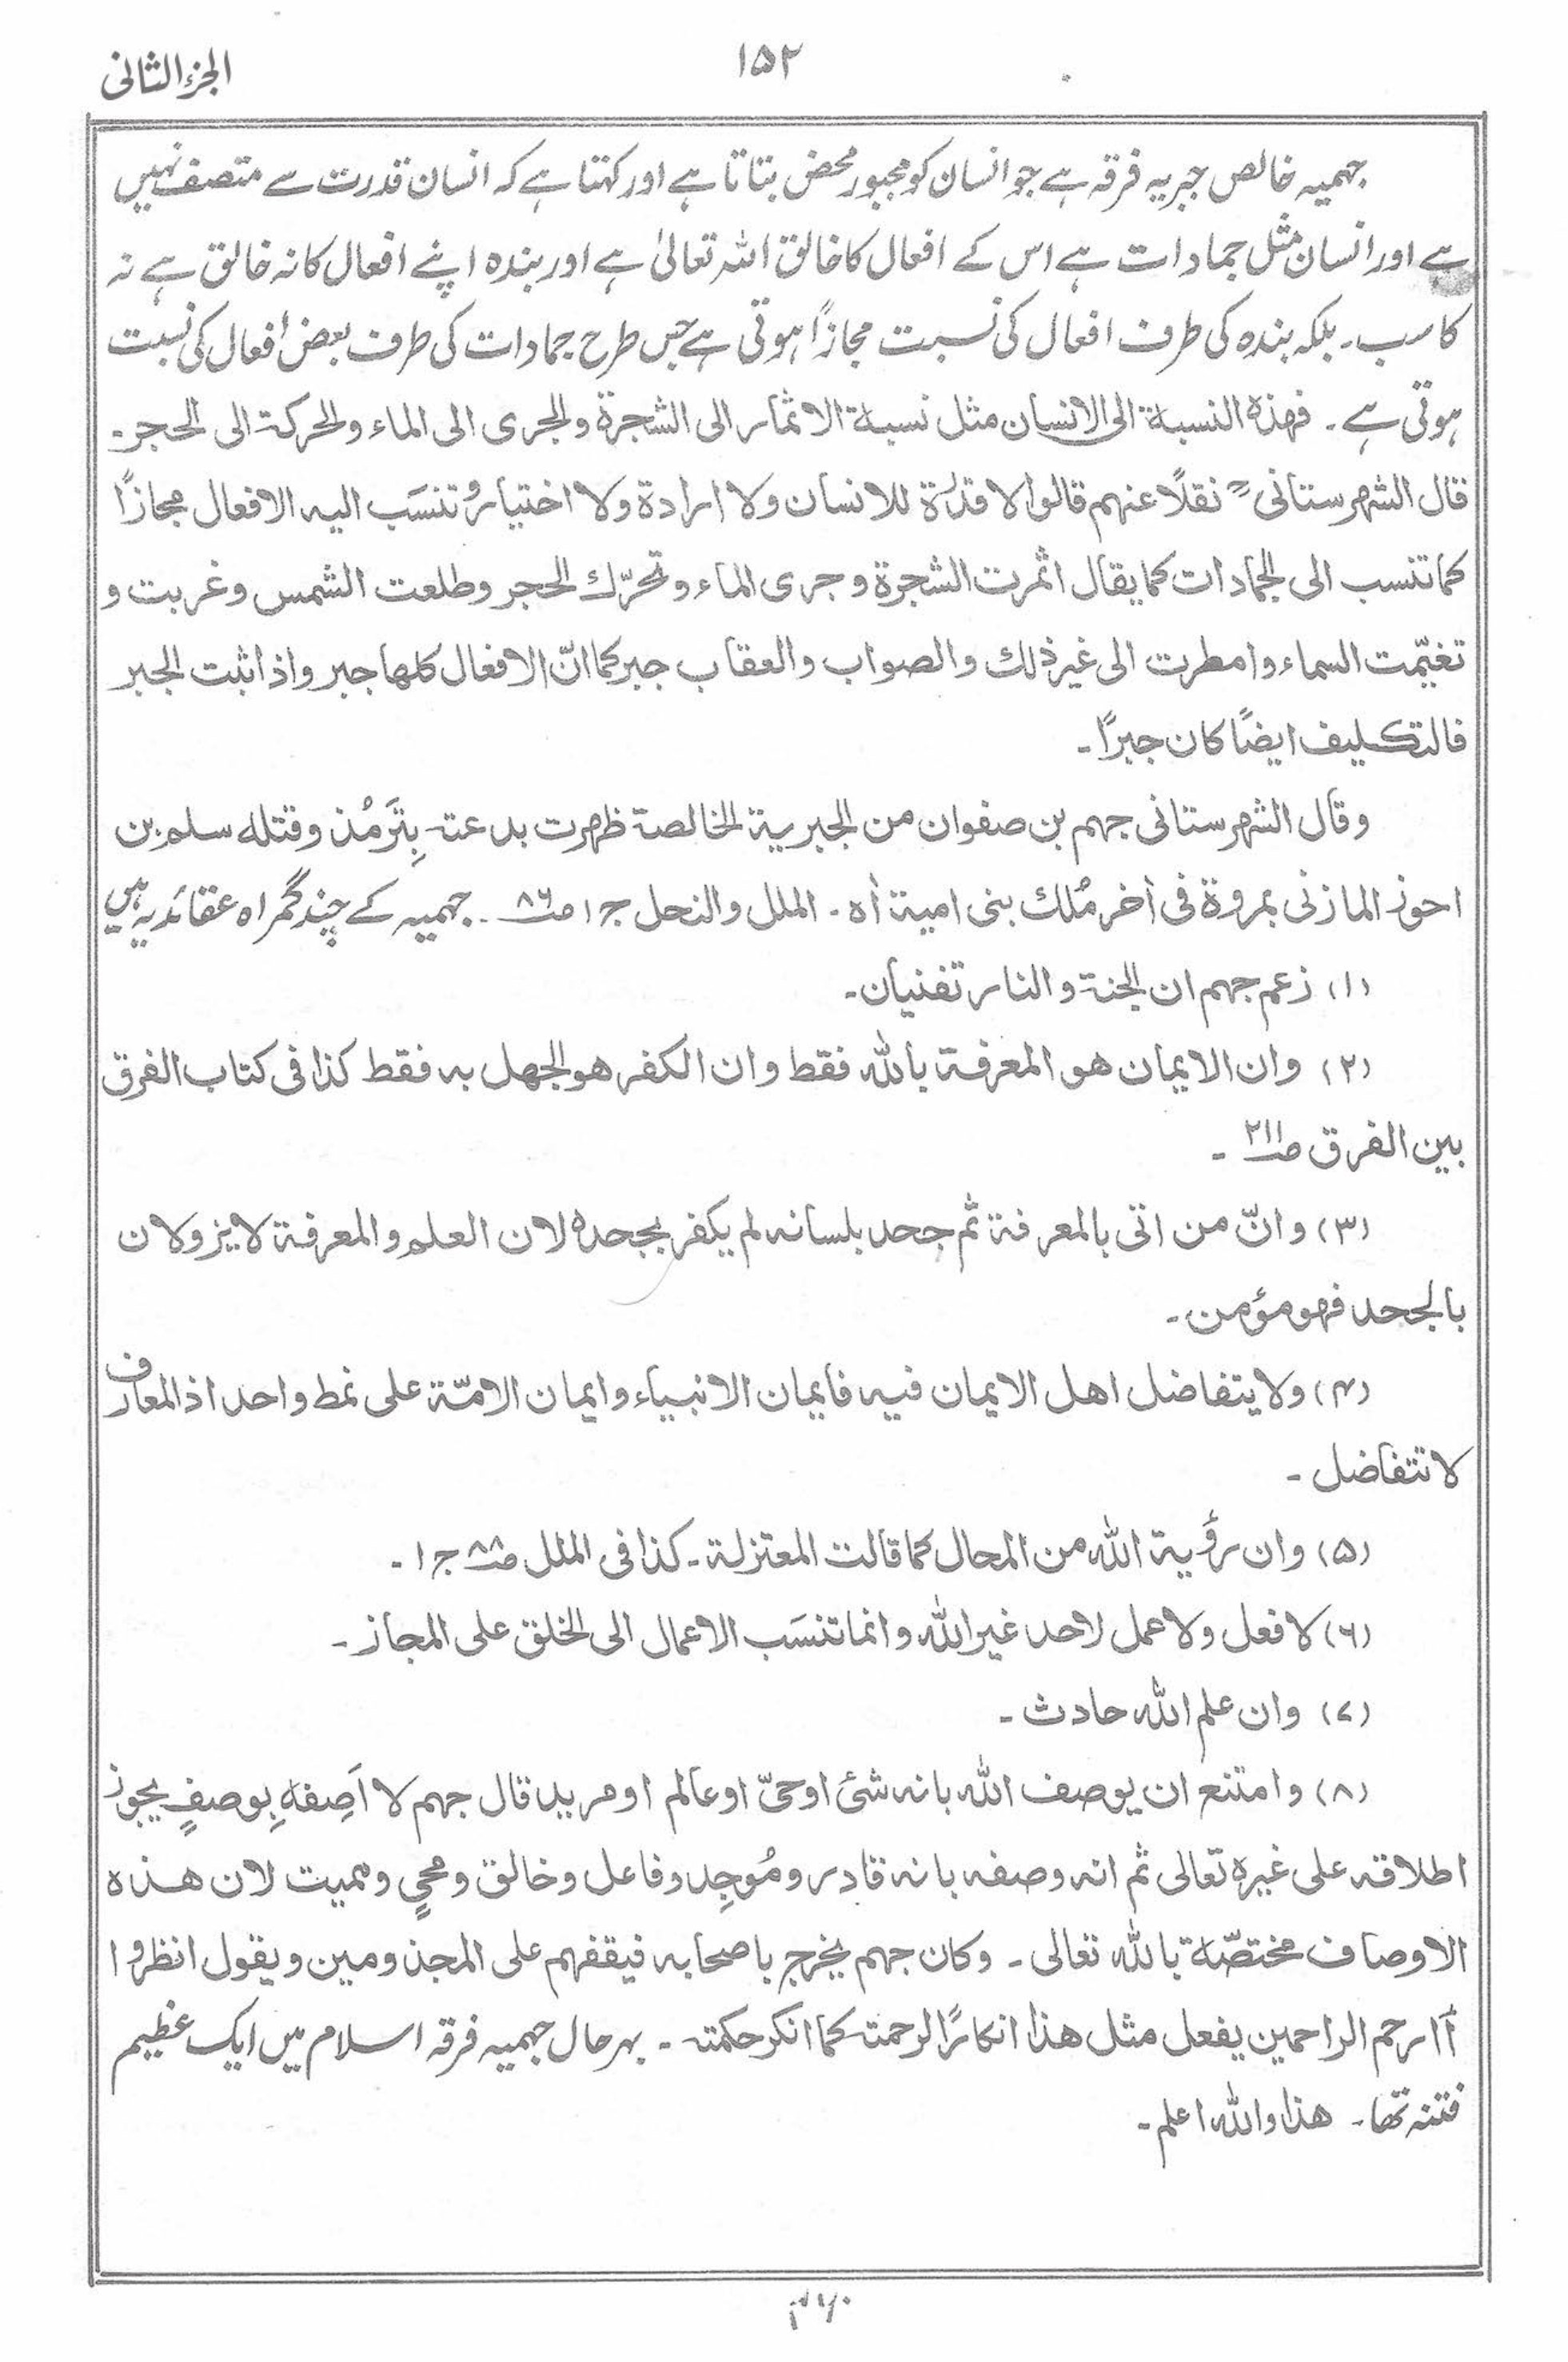 الجزء الثانی
۱۵۲
جہمیہ خالص جبریہ فرقہ ہے جو انسان کو مجبور محض بتاتا ہے اور کہتا ہے کہ انسان قدرت سے متصف نہیں
ہے اور انسان مثل جمادات ہے اس کے افعال کا خالق اللہ تعالیٰ ہے اور بندہ اپنے افعال کا نہ خالق ہے نہ
کاسب۔ بلکہ بندہ کی طرف افعال کی نسبت مجازاً ہوتی ہے جس طرح جمادات کی طرف بعض افعال کی نسبت
ہوتی ہے۔ فهذه النسبة الی الانسان مثل نسبة الاثمار الی الشجرة والجری الی الماء والحركة الی الحجر۔
قال الشهرستانی نقلًا عنهم قالوا لا قدرة للانسان ولا ارادة ولا اختیار وتنسَب الیه الافعال مجازًا
كما تنسب الی الجمادات كما یقال اثمرت الشجرة وجری الماء وتحرّك الحجر وطلعت الشمس وغربت و
تغیّمت السماء وامطرت الی غیر ذلك والصواب والعقاب جبر كما انّ الافعال كلها جبر واذا ثبت الجبر
فالتكلیف ایضًا كان جبرًا۔
وقال الشهرستانی جهم بن صفوان من الجبریة الخالصة ظهرت بدعته بِتَرمُذ وقتله سلم بن
احوز المازنی بمروة فی أخر مُلك بنی امیة أه۔ الملل والنحل ج۱ ص۸۶۔ جہمیہ کے چند گمراہ عقائد یہ ہیں
(۱) زعم جهم ان الجنة والنار تفنیان۔
(۲) وان الایمان هو المعرفة بالله فقط وان الكفر هو الجهل به فقط كذا فی كتاب الفرق
بین الفرق ص۲۱۱۔
(۳) وانّ من اتی بالمعرفة ثم جحد بلسانه لم یكفر بجحده لان العلم والمعرفة لا یزولان
بالجحد فهو مؤمن۔
(۴) ولا یتفاضل اهل الایمان فیه فایمان الانبیاء وایمان الامّة علی نمط واحد اذ المعارف
لا تتفاضل۔
(۵) وان رؤیة الله من المحال كما قالت المعتزلة۔ كذا فی الملل ص۸۸ ج۱۔
(۶) لا فعل ولا عمل لاحد غیر الله وانما تنسَب الاعمال الی الخلق علی المجاز۔
(۷) وان علم الله حادث۔
(۸) وامتنع ان یوصف الله بانه شیٔ او حیّ او عالم او مرید قال جهم لا اَصِفهٗ بِوصفٍ یجوز
اطلاقه علی غیرہٖ تعالی ثم انه وصفه بانه قادر ومُوجِد وفاعل وخالق ومحیٍ وممیت لان هذه
الاوصاف مختصّة بالله تعالی۔ وكان جهم یخرج باصحابه فیقفهم علی المجذومین ویقول انظروا
أارحم الراحمین یفعل مثل هذا انكارًا لرحمته كما انكر حكمته۔ بہرحال جہمیہ فرقہ اسلام میں ایک عظیم
فتنہ تھا۔ هذا والله اعلم۔